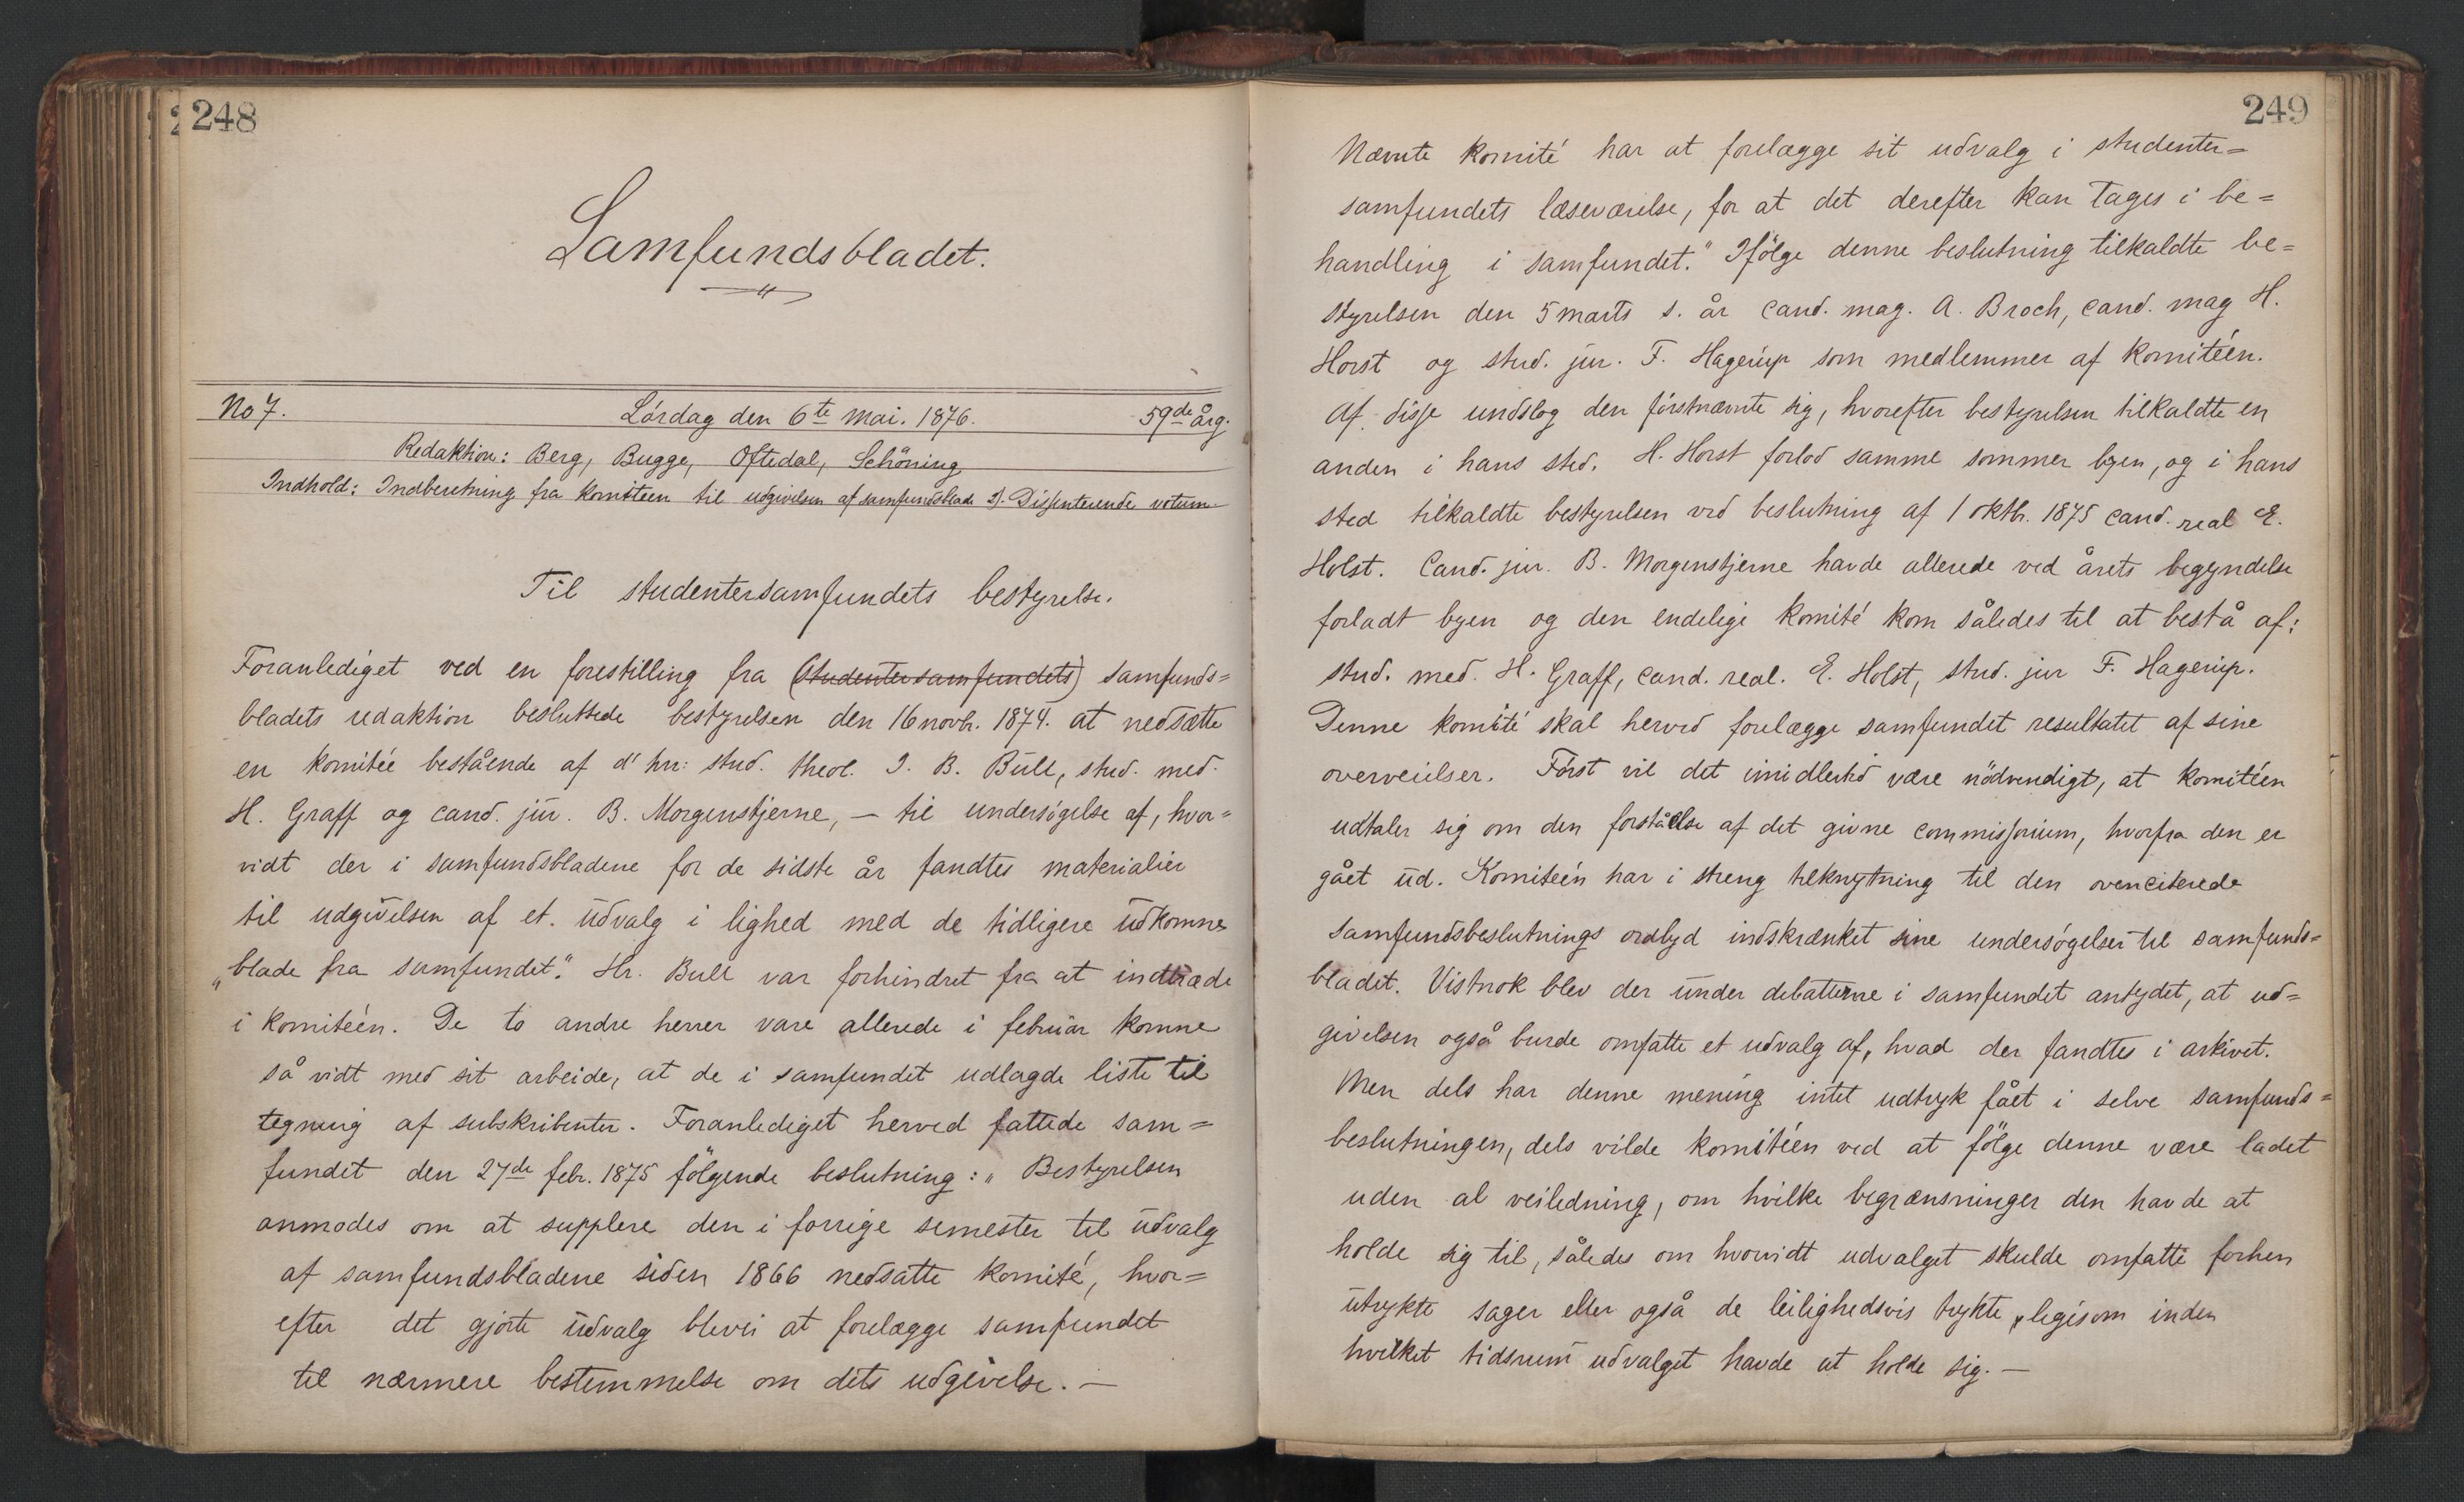 248
Samfundsbladet.
No 7. Lørdag den 6te mai. 1876. 59de årg.
Redaktion: Berg, Bugge, Oftedal, Schöning
Indhold: Indberetning fra komiteen til udgivelsen af samfundsblade 2). Dissenterende votum.
Til studentersamfundets bestyrelse.
Foranlediget ved en forestilling fra (studentersamfundets) samfunds=
bladets redaktion besluttede bestyrelsen den 16 novbr. 1874. at nedsætte
en komitée bestående af d'hrr: stud. theol. I. B. Bull, stud. med.
H. Graff og cand. jur. B. Morgenstjerne, — til undersøgelse af, hvor=
vidt der i samfundsbladene for de sidste år fandtes materialier
til udgivelsen af et udvalg i lighed med de tidligere udkomne
„blade fra samfundet". Hr. Bull var forhindret fra at indtræde
i komiteén. De to andre herrer vare allerede i februar komne
så vidt med sit arbeide, at de i samfundet udlagde liste til
tegning af subskribenter. Foranlediget herved fattede sam=
fundet den 27de febr. 1875 følgende beslutning: „Bestyrelsen
anmodes om at supplere den i forrige semester til udvalg
af samfundsbladene siden 1866 nedsatte komité, hvor=
efter det gjorte udvalg bliver at forelægge samfundet
til nærmere bestemmelse om dets udgivelse. —
249
Nævnte komité har at forelægge sit udvalg i studenter=
samfundets læseværelse, for at det derefter kan tages i be=
handling i samfundet." Ifølge denne beslutning tilkaldte be=
styrelsen den 5 marts s. år cand. mag. A. Broch, cand. mag H.
Horst og stud. jur. F. Hagerup som medlemmer af komitéen.
Af disse undslog den førstnævnte sig, hvorefter bestyrelsen tilkaldte en
anden i hans sted. H. Horst forlod samme sommer byen, og i hans
sted tilkaldte bestyrelsen ved beslutning af 1 oktbr. 1875 cand. real E.
Holst. Cand. jur. B. Morgenstjerne havde allerede ved årets begyndelse
forladt byen og den endelige komité kom således til at bestå af:
stud. med. H. Graff, cand. real. E. Holst, stud. jur F. Hagerup.
Denne komité skal herved forelægge samfundet resultatet af sine
overveielser. Først vil det imidlertid være nødvendigt, at komitéen
udtaler sig om den forståelse af det givne commissorium, hvorfra den er
gået ud. Komiteén har i streng tilknytning til den ovenciterede
samfundsbeslutnings ordlyd indskrænket sine undersøgelser til samfunds=
bladet. Vistnok blev der under debatterne i samfundet antydet, at ud=
givelsen også burde omfatte et udvalg af, hvad der fandtes i arkivet.
Men dels har denne mening intet udtryk fået i selve samfunds=
beslutningen, dels vilde komitéen ved at følge denne være ladet
uden al veiledning, om hvilke begrænsninger den havde at
holde sig til, således om hvorvidt udvalget skulde omfatte forhen
utrykte sager eller også de leilighedsvis trykte, ligesom inden
hvilket tidsrum udvalget havde at holde sig. —